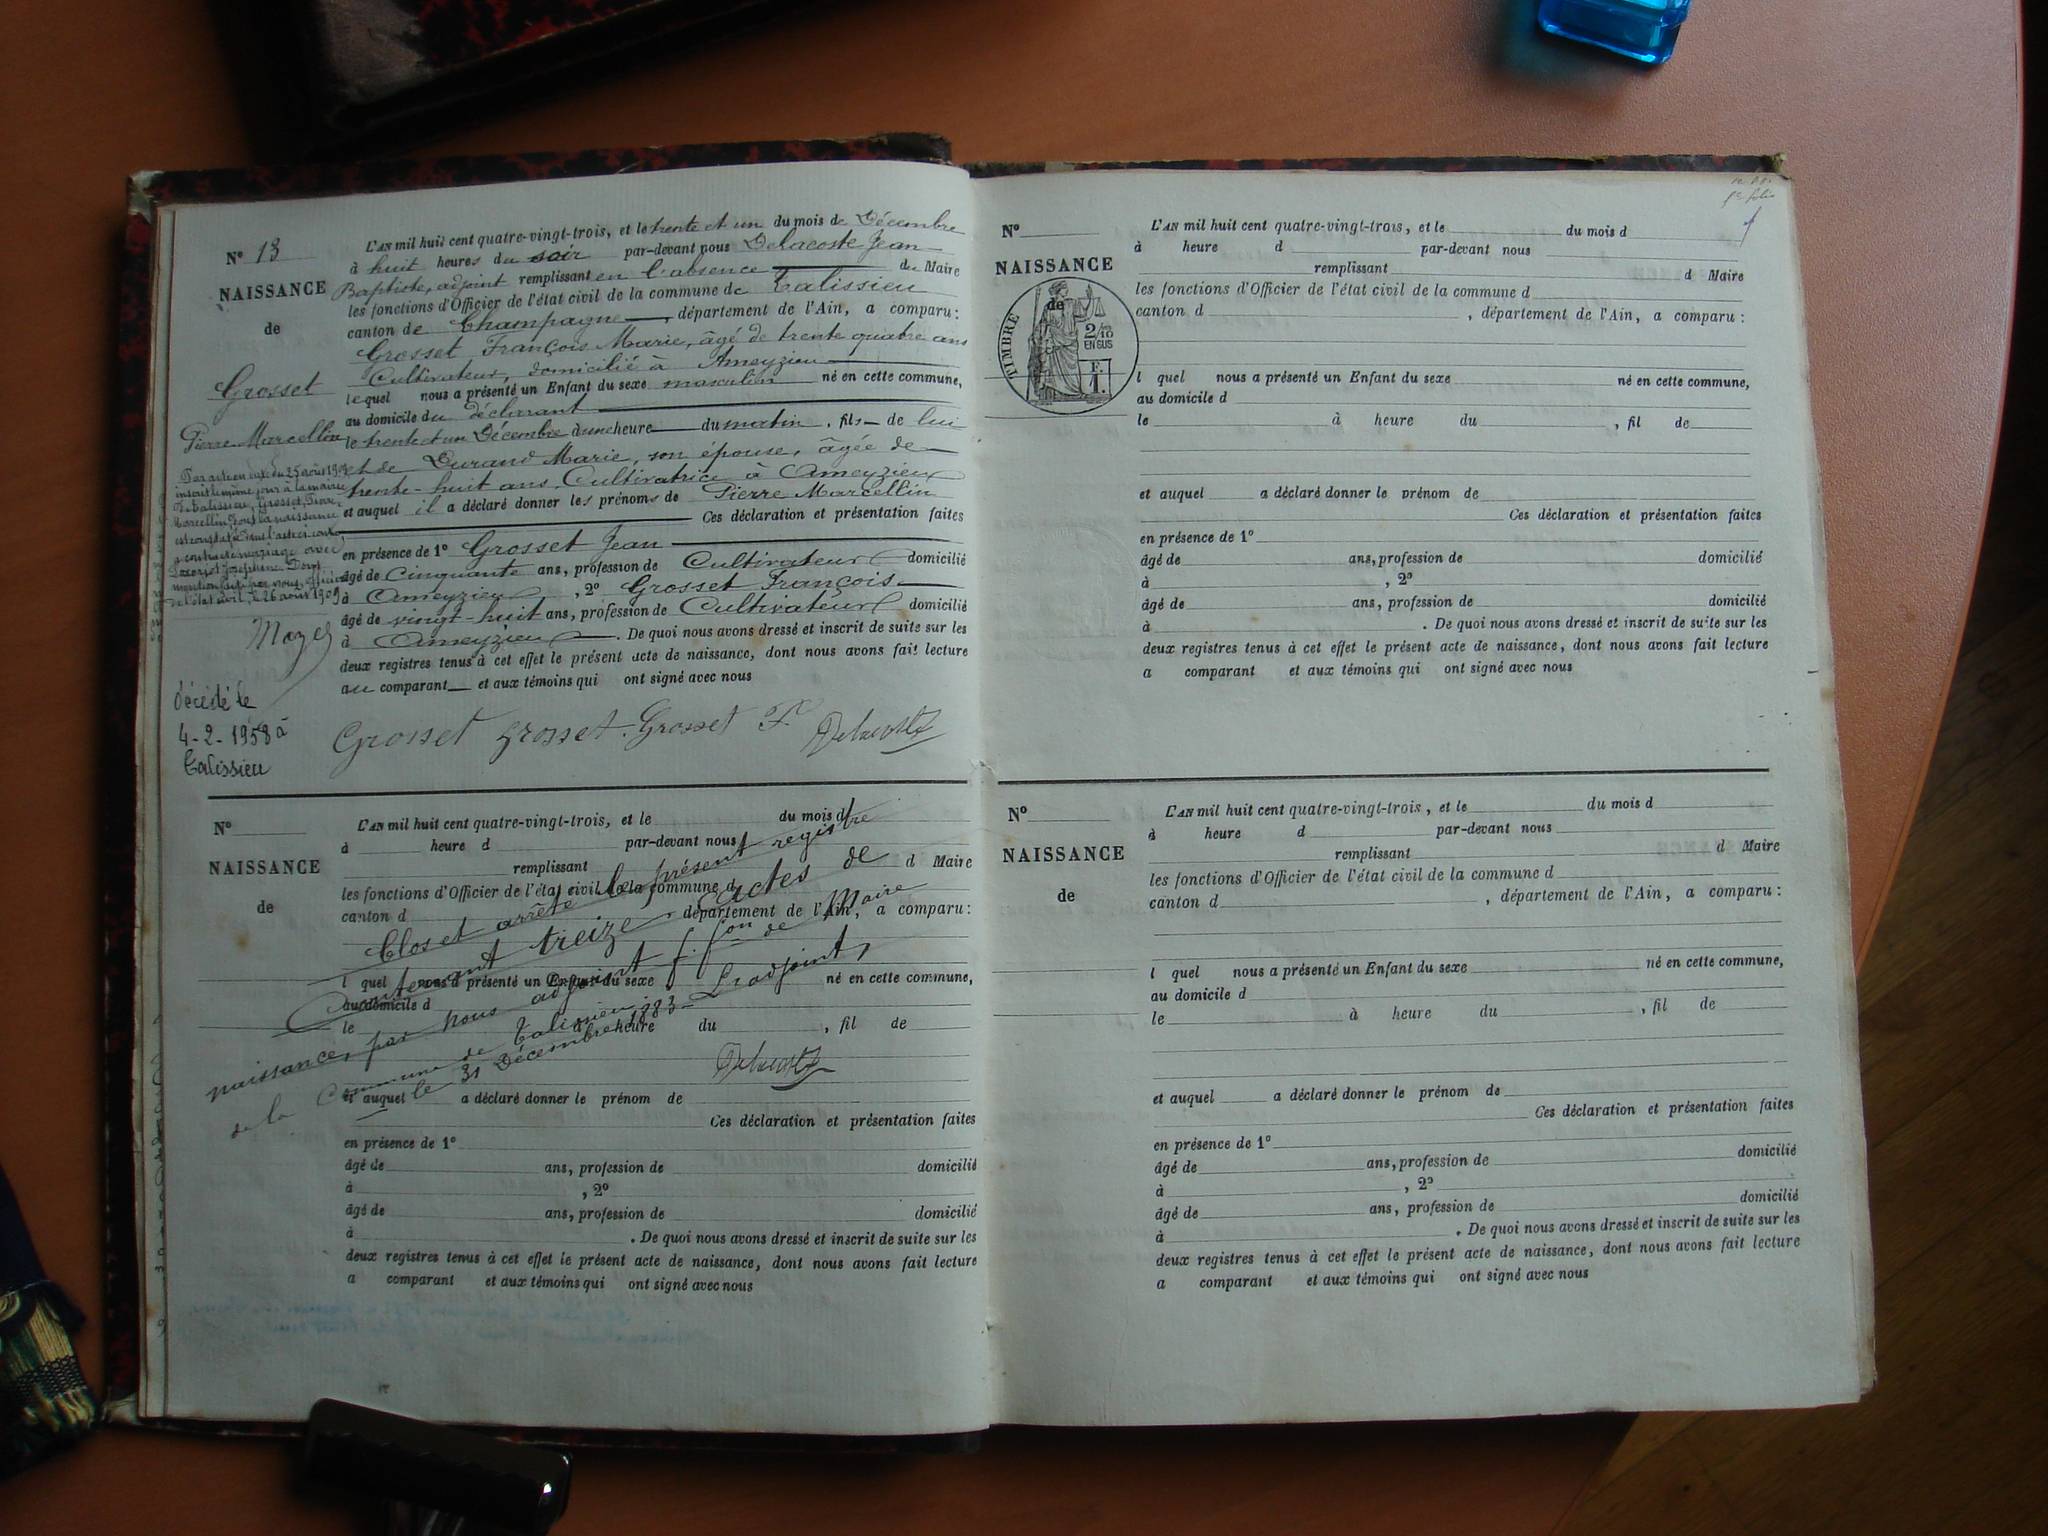 Nº 13
NAISSANCE
de
Grosset
Pierre Marcellin
L'AN mil huit cent quatre-vingt-trois, et le trente et un du mois de Décembre
à huit heures du soir par-devant nous Delacoste Jean
Baptiste, adjoint remplissant en l'absence du Maire
les fonctions d'Officier de l'état civil de la commune de Talissieu
canton de Champagne, département de l'Ain, a comparu:
Grosset François Marie, âgé de trente quatre ans
Cultivateur, domicilié à Ameyzieu
lequel nous a présenté un Enfant du sexe masculin né en cette commune,
au domicile du déclarant
le trente et un Décembre à une heure du matin, fils de lui
et de Durand Marie, son épouse, âgée de
trente-huit ans Cultivatrice à Ameyzieu
et auquel il a déclaré donner les prénoms de Pierre Marcellin
Ces déclaration et présentation faites
en présence de 1º Grosset Jean
âgé de Cinquante ans, profession de Cultivateur domicilié
à Ameyzieu, 2º Grosset François
âgé de vingt-huit ans, profession de Cultivateur domicilié
à Ameyzieu. De quoi nous avons dressé et inscrit de suite sur les
deux registres tenus à cet effet le présent acte de naissance, dont nous avons fait lecture
au comparant et aux témoins qui ont signé avec nous
Grosset Grosset Grosset F. Delacoste
Par acte en date du 25 août 1909
inscrit le même jour à la mairie
de Talissieu, Grosset Pierre
Marcellin, dont la naissance
est constatée dans l'acte ci-contre
a contracté mariage avec
Joséphine
mention faite par nous, officier
de l'état civil, le 26 août 1909
décédé le
4-2-1958 à
Talissieu
Nº
NAISSANCE
de
L'AN mil huit cent quatre-vingt-trois, et le du mois d
à heure d par-devant nous
remplissant d Maire
les fonctions d'Officier de l'état civil de la commune d
canton d , département de l'Ain, a comparu:
l quel nous a présenté un Enfant du sexe né en cette commune,
au domicile d
le à heure du , fil de
et auquel a déclaré donner le prénom de
Ces déclaration et présentation faites
en présence de 1º
âgé de ans, profession de domicilié
à , 2º
âgé de ans, profession de domicilié
à . De quoi nous avons dressé et inscrit de suite sur les
deux registres tenus à cet effet le présent acte de naissance, dont nous avons fait lecture
a comparant et aux témoins qui ont signé avec nous
Clos et arrêté le présent registre
Contenant treize actes de
naissance, par nous adjoint f. fon de Maire
de la Commune de Talissieu
le 31 Décembre 1883 L'adjoint,
Delacoste
Nº
NAISSANCE
de
TIMBRE
2/10
EN SUS
F.
1.
L'AN mil huit cent quatre-vingt-trois, et le du mois d
à heure d par-devant nous
remplissant d Maire
les fonctions d'Officier de l'état civil de la commune d
canton d , département de l'Ain, a comparu:
l quel nous a présenté un Enfant du sexe né en cette commune,
au domicile d
le à heure du , fil de
et auquel a déclaré donner le prénom de
Ces déclaration et présentation faites
en présence de 1º
âgé de ans, profession de domicilié
à , 2º
âgé de ans, profession de domicilié
à . De quoi nous avons dressé et inscrit de suite sur les
deux registres tenus à cet effet le présent acte de naissance, dont nous avons fait lecture
a comparant et aux témoins qui ont signé avec nous
Nº
NAISSANCE
de
L'AN mil huit cent quatre-vingt-trois, et le du mois d
à heure d par-devant nous
remplissant d Maire
les fonctions d'Officier de l'état civil de la commune d
canton d , département de l'Ain, a comparu:
l quel nous a présenté un Enfant du sexe né en cette commune,
au domicile d
le à heure du , fil de
et auquel a déclaré donner le prénom de
Ces déclaration et présentation faites
en présence de 1º
âgé de ans, profession de domicilié
à , 2º
âgé de ans, profession de domicilié
à . De quoi nous avons dressé et inscrit de suite sur les
deux registres tenus à cet effet le présent acte de naissance, dont nous avons fait lecture
a comparant et aux témoins qui ont signé avec nous